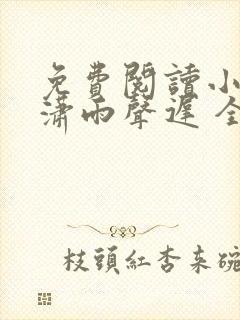 免費閱讀小
瀟雨聲遲 全
枝頭紅杏來碗